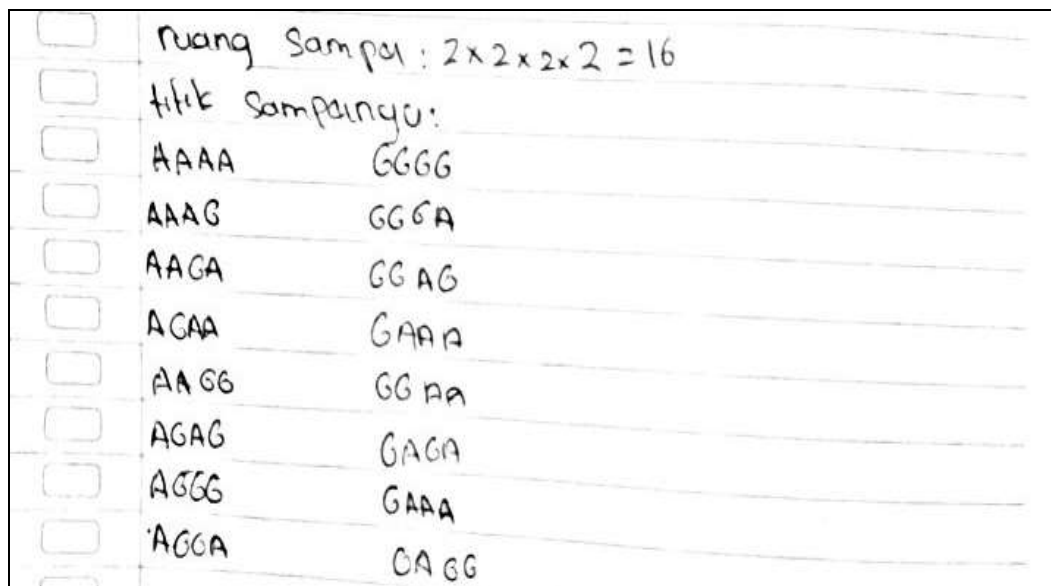 ruang Sampel : 2x2x2x2 = 16
titik Sampelnya:
AAAA GGGG
AAAG GGGA
AAGA GGAG
AGAA GAAA
AAGG GGAA
AGAG GAGA
AGGG GAAA
AGGA GAGG